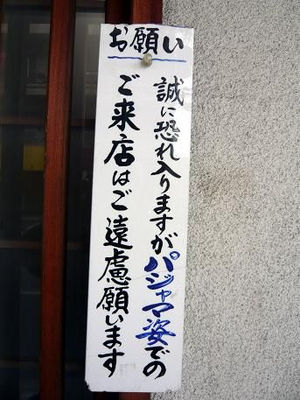 お願い
誠に恐れ入りますがパジャマ姿での
ご来店はご遠慮願います